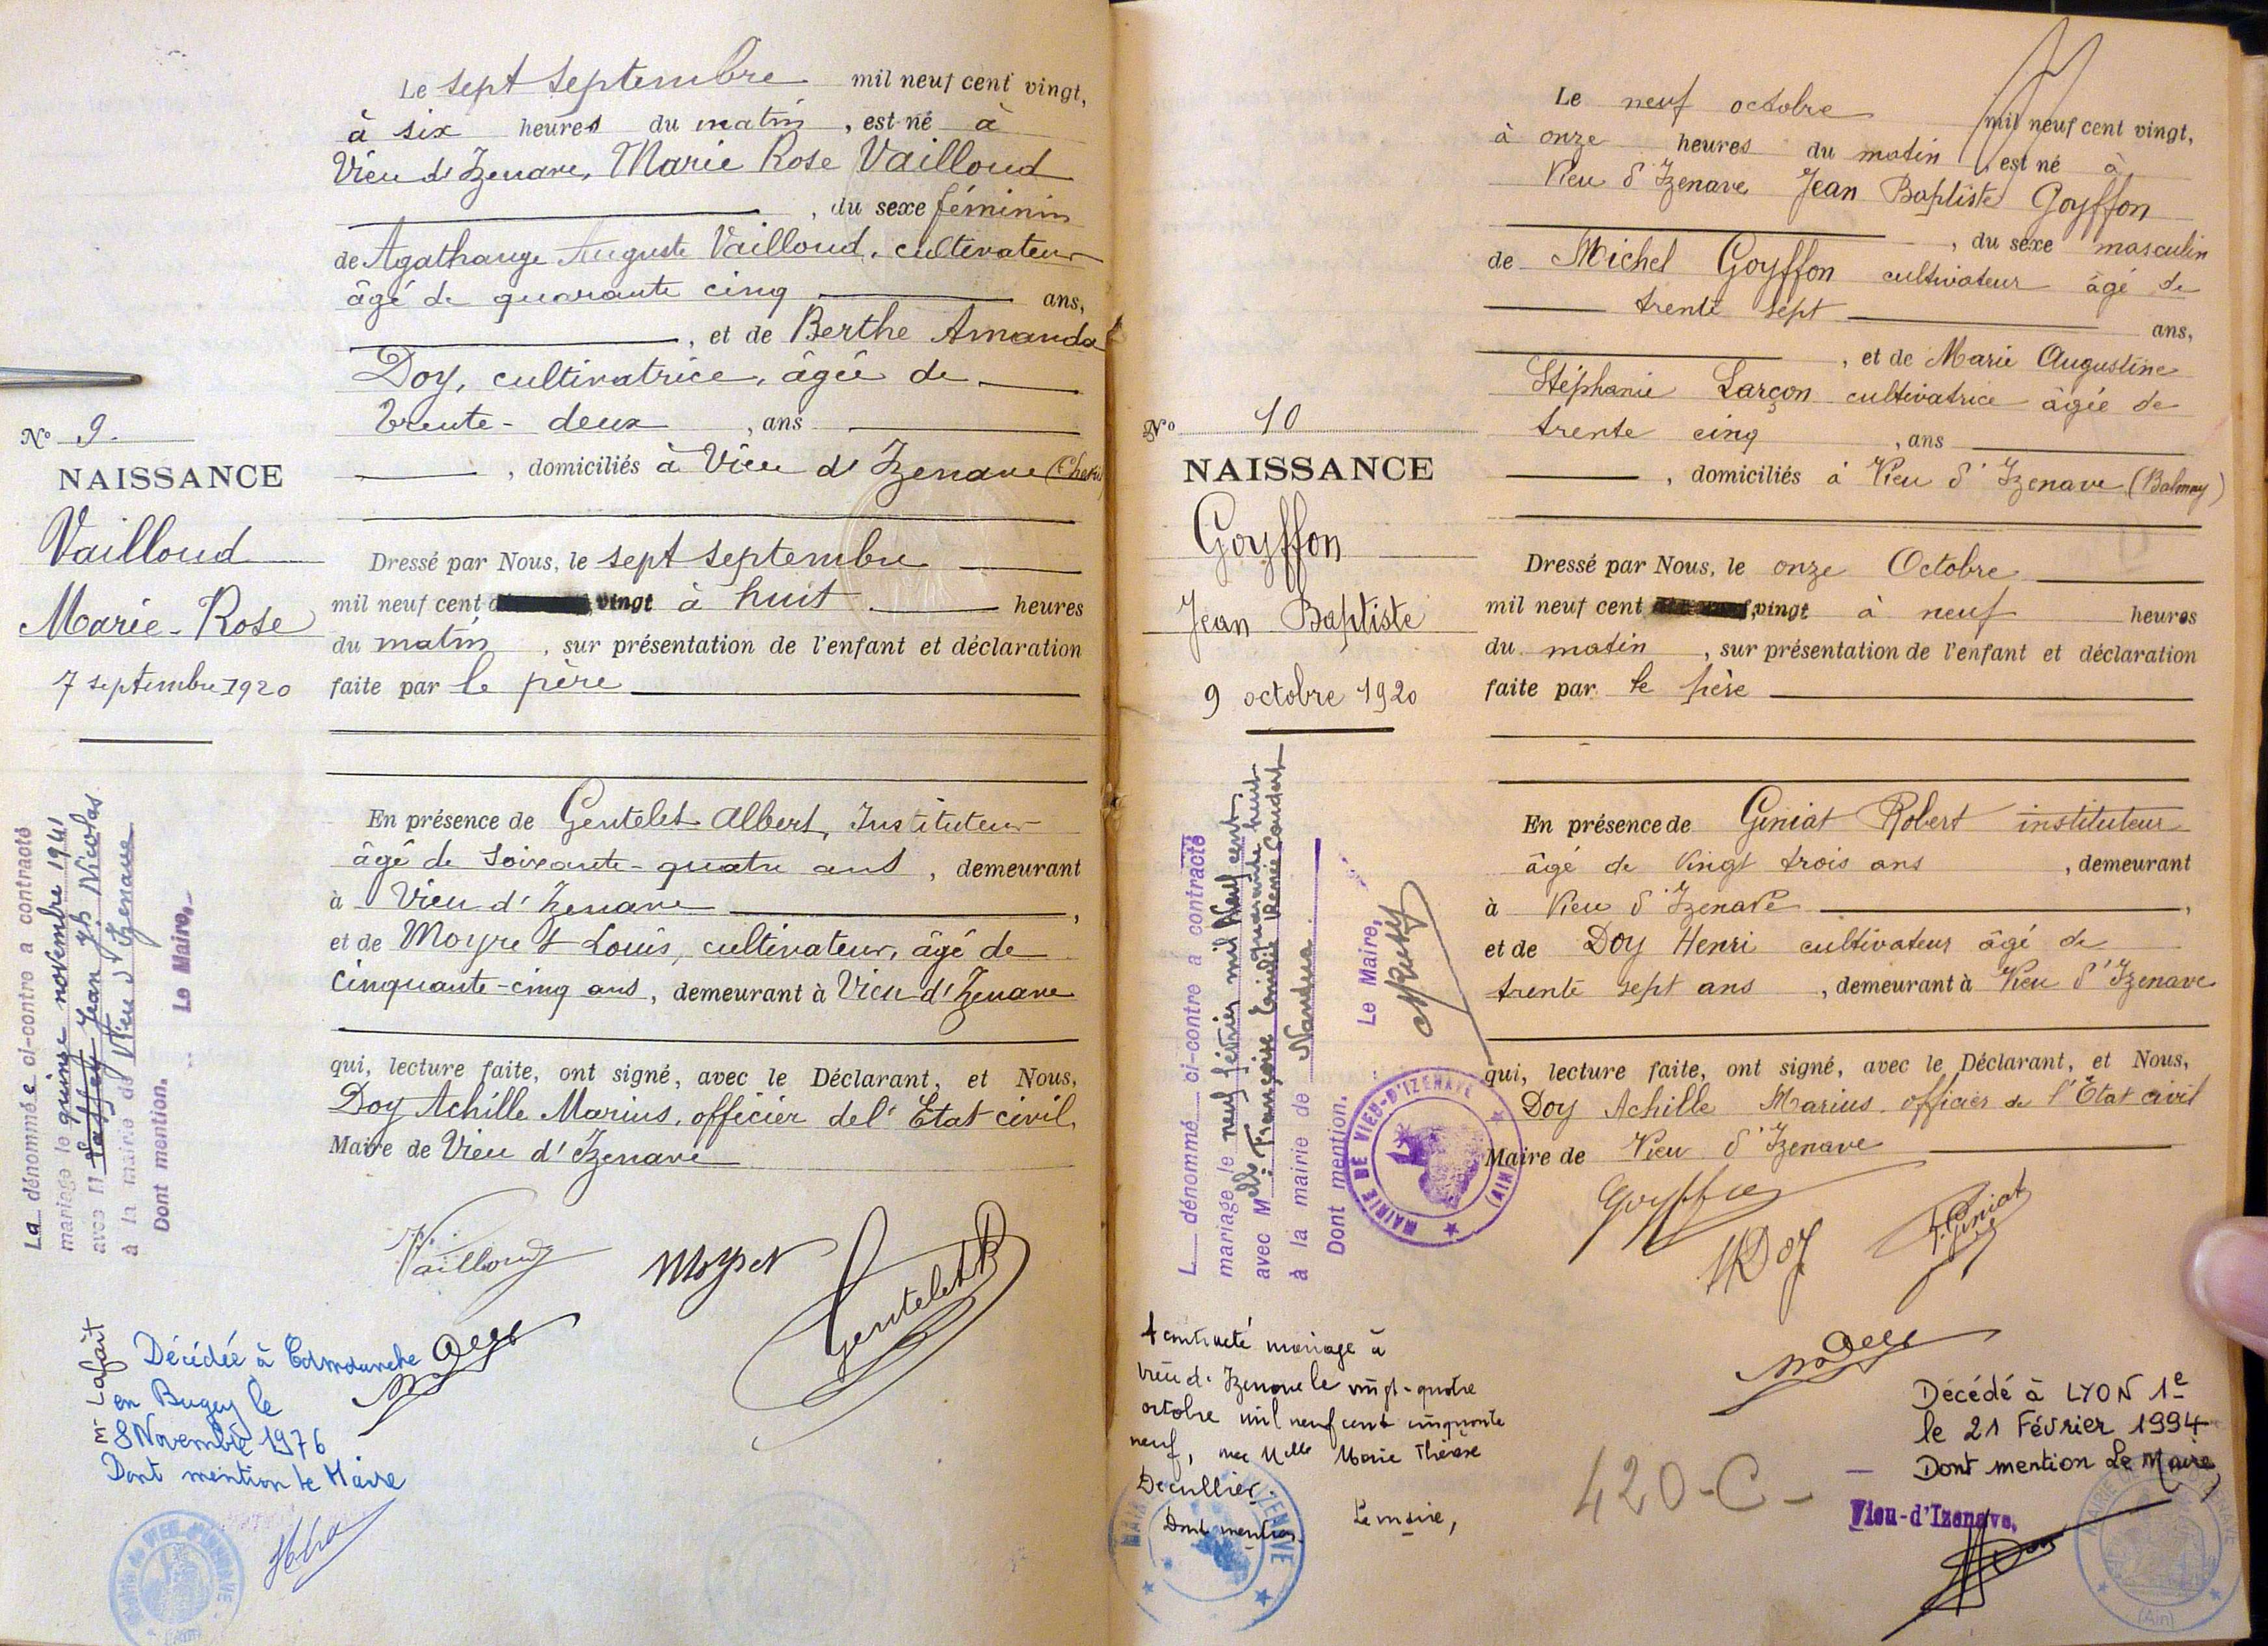 Le sept septembre mil neuf cent vingt,
à six heures du matin, est né à
Vieu d'Izenave, Marie Rose Vailloud
, du sexe féminin
de Agathange Auguste Vailloud, cultivateur
âgé de quarante cinq ans,
, et de Berthe Amanda
Doy, cultivatrice, âgée de
trente-deux, ans
, domiciliés à Vieu d'Izenave
N° 9.
NAISSANCE
Vailloud
Marie-Rose
7 septembre 1920
Dressé par Nous, le sept septembre
mil neuf cent vingt à huit heures
du matin, sur présentation de l'enfant et déclaration
faite par le père
En présence de Gentelet Albert, Instituteur
âgé de soixante-quatre ans, demeurant
à Vieu d'Izenave,
et de Moyret Louis, cultivateur, âgé de
cinquante-cinq ans, demeurant à Vieu d'Izenave
qui, lecture faite, ont signé, avec le Déclarant, et Nous,
Doy Achille Marius, officier de l'Etat civil,
Maire de Vieu d'Izenave
La dénommée ci-contre a contracté
mariage le quinze novembre 1941
avec M Jean Nicolas
à la mairie de Vieu d'Izenave
Dont mention.
Le Maire,
Vailloud
Moyret
Gentelet
Décédée à
en Bugey le
8 Novembre 1976
Dont mention le Maire
Le neuf octobre mil neuf cent vingt,
à onze heures du matin, est né à
Vieu d'Izenave Jean Baptiste Goyffon
, du sexe masculin
de Michel Goyffon cultivateur âgé de
trente sept ans,
, et de Marie Augustine
Stéphanie Larçon cultivatrice âgée de
trente cinq, ans
, domiciliés à Vieu d'Izenave (Balmay)
N° 10
NAISSANCE
Goyffon
Jean Baptiste
9 octobre 1920
Dressé par Nous, le onze Octobre
mil neuf cent vingt à neuf heures
du matin, sur présentation de l'enfant et déclaration
faite par le père
En présence de Géniat Robert instituteur
âgé de vingt trois ans, demeurant
à Vieu d'Izenave,
et de Doy Henri cultivateur âgé de
trente sept ans, demeurant à Vieu d'Izenave
qui, lecture faite, ont signé, avec le Déclarant, et Nous,
Doy Achille Marius, officier de l'Etat civil
Maire de Vieu d'Izenave
L dénommé ci-contre a contracté
mariage le neuf février mil neuf cent quarante huit
avec Melle Françoise Emilie Renée Coudert
à la mairie de Nantua
Dont mention.
Le Maire,
MAIRIE DE VIEU-D'IZENAVE
(AIN)
Goyffon
HDoy
R. Géniat
A contracté mariage à
Vieu d'Izenave le vingt-quatre
octobre mil neuf cent cinquante
neuf, avec Melle Marie Thérèse
Decullier.
Dont mention. Le maire,
420-C-
Décédé à LYON 1e
le 21 Février 1994
Dont mention Le Maire,
Vieu-d'Izenave,
(Ain)